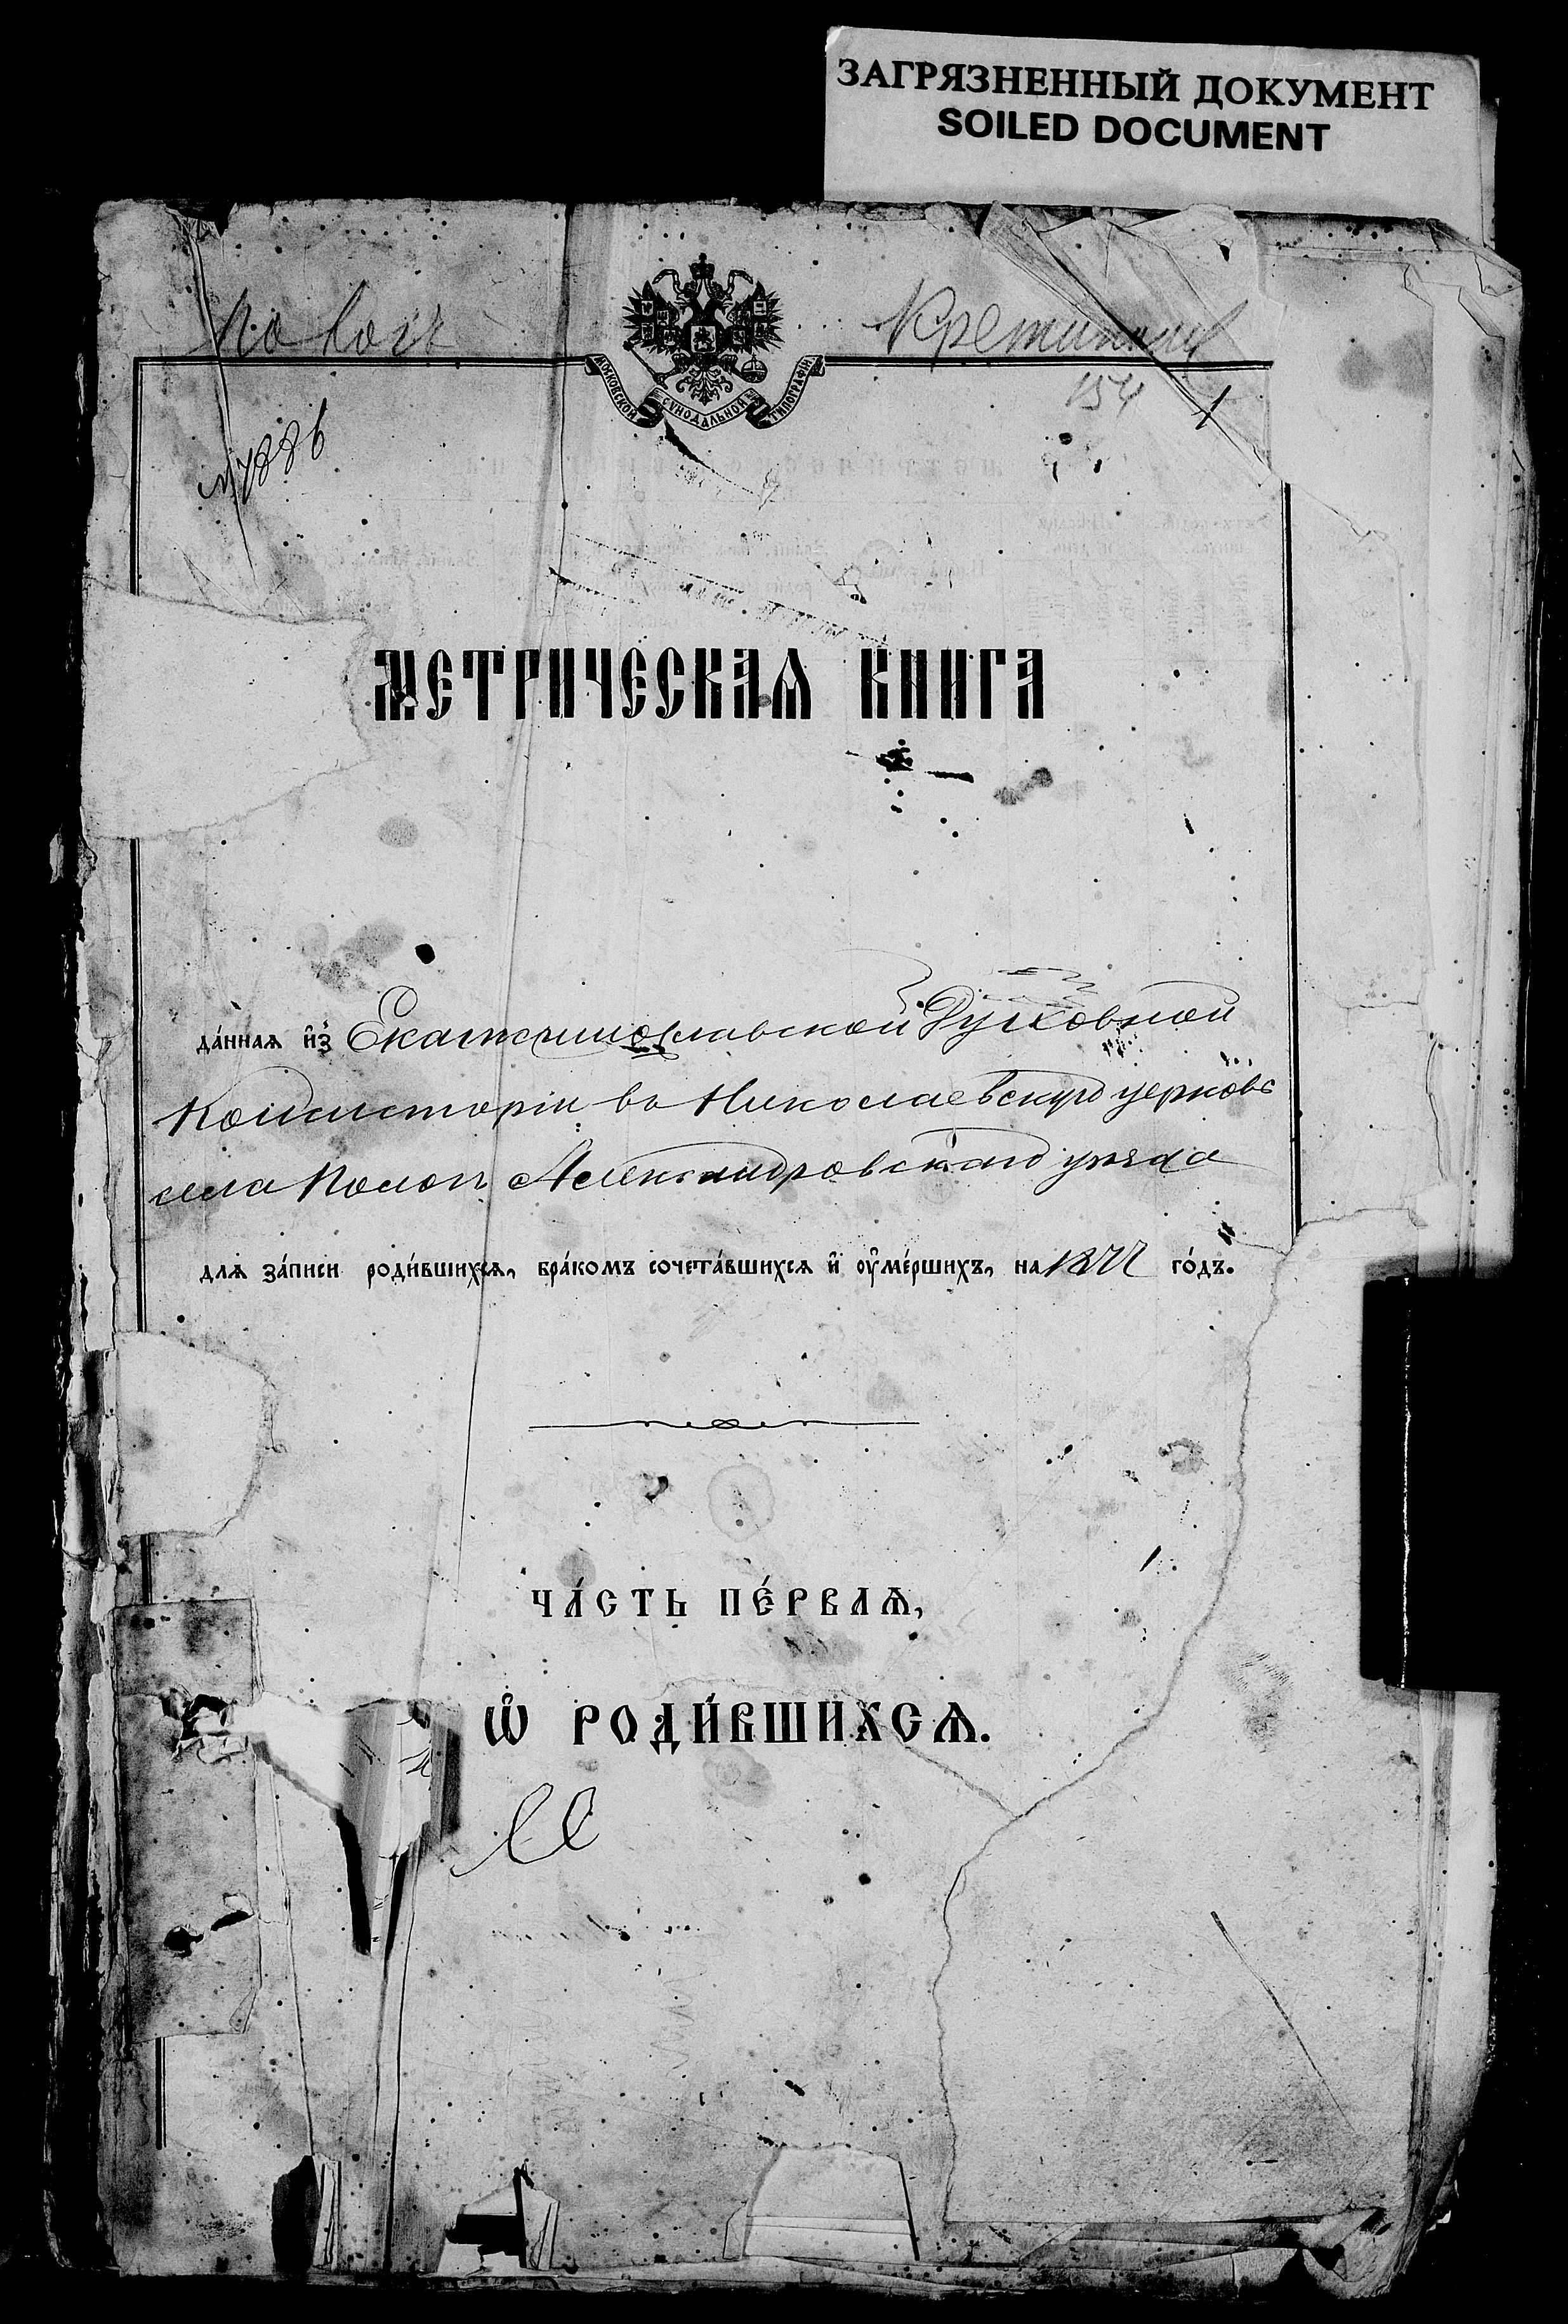 ЗАГРЯЗНЕННЫЙ ДОКУМЕНТ
SOILED DOCUMENT
МОСКОВСКОЙ СѴНОДАЛЬНОЙ ТИПОГРАФІИ
154
№ 7886
МЕТРИЧЕСКАѦ КНИГА
да́ннаѧ и҆з̾ Екатеринославской Духовной
Консисторіи въ Николаевскую церковь
села Александровскаго уѣзда
длѧ за́писи роди́вшихсѧ, бра́комъ сочета́вшихсѧ и҆ оу҆ме́ршихъ, на 1877 го́дъ.
ЧА́СТЬ ПЕ́РВАѦ,
Ѡ҆ РОДИ́ВШИХСѦ.